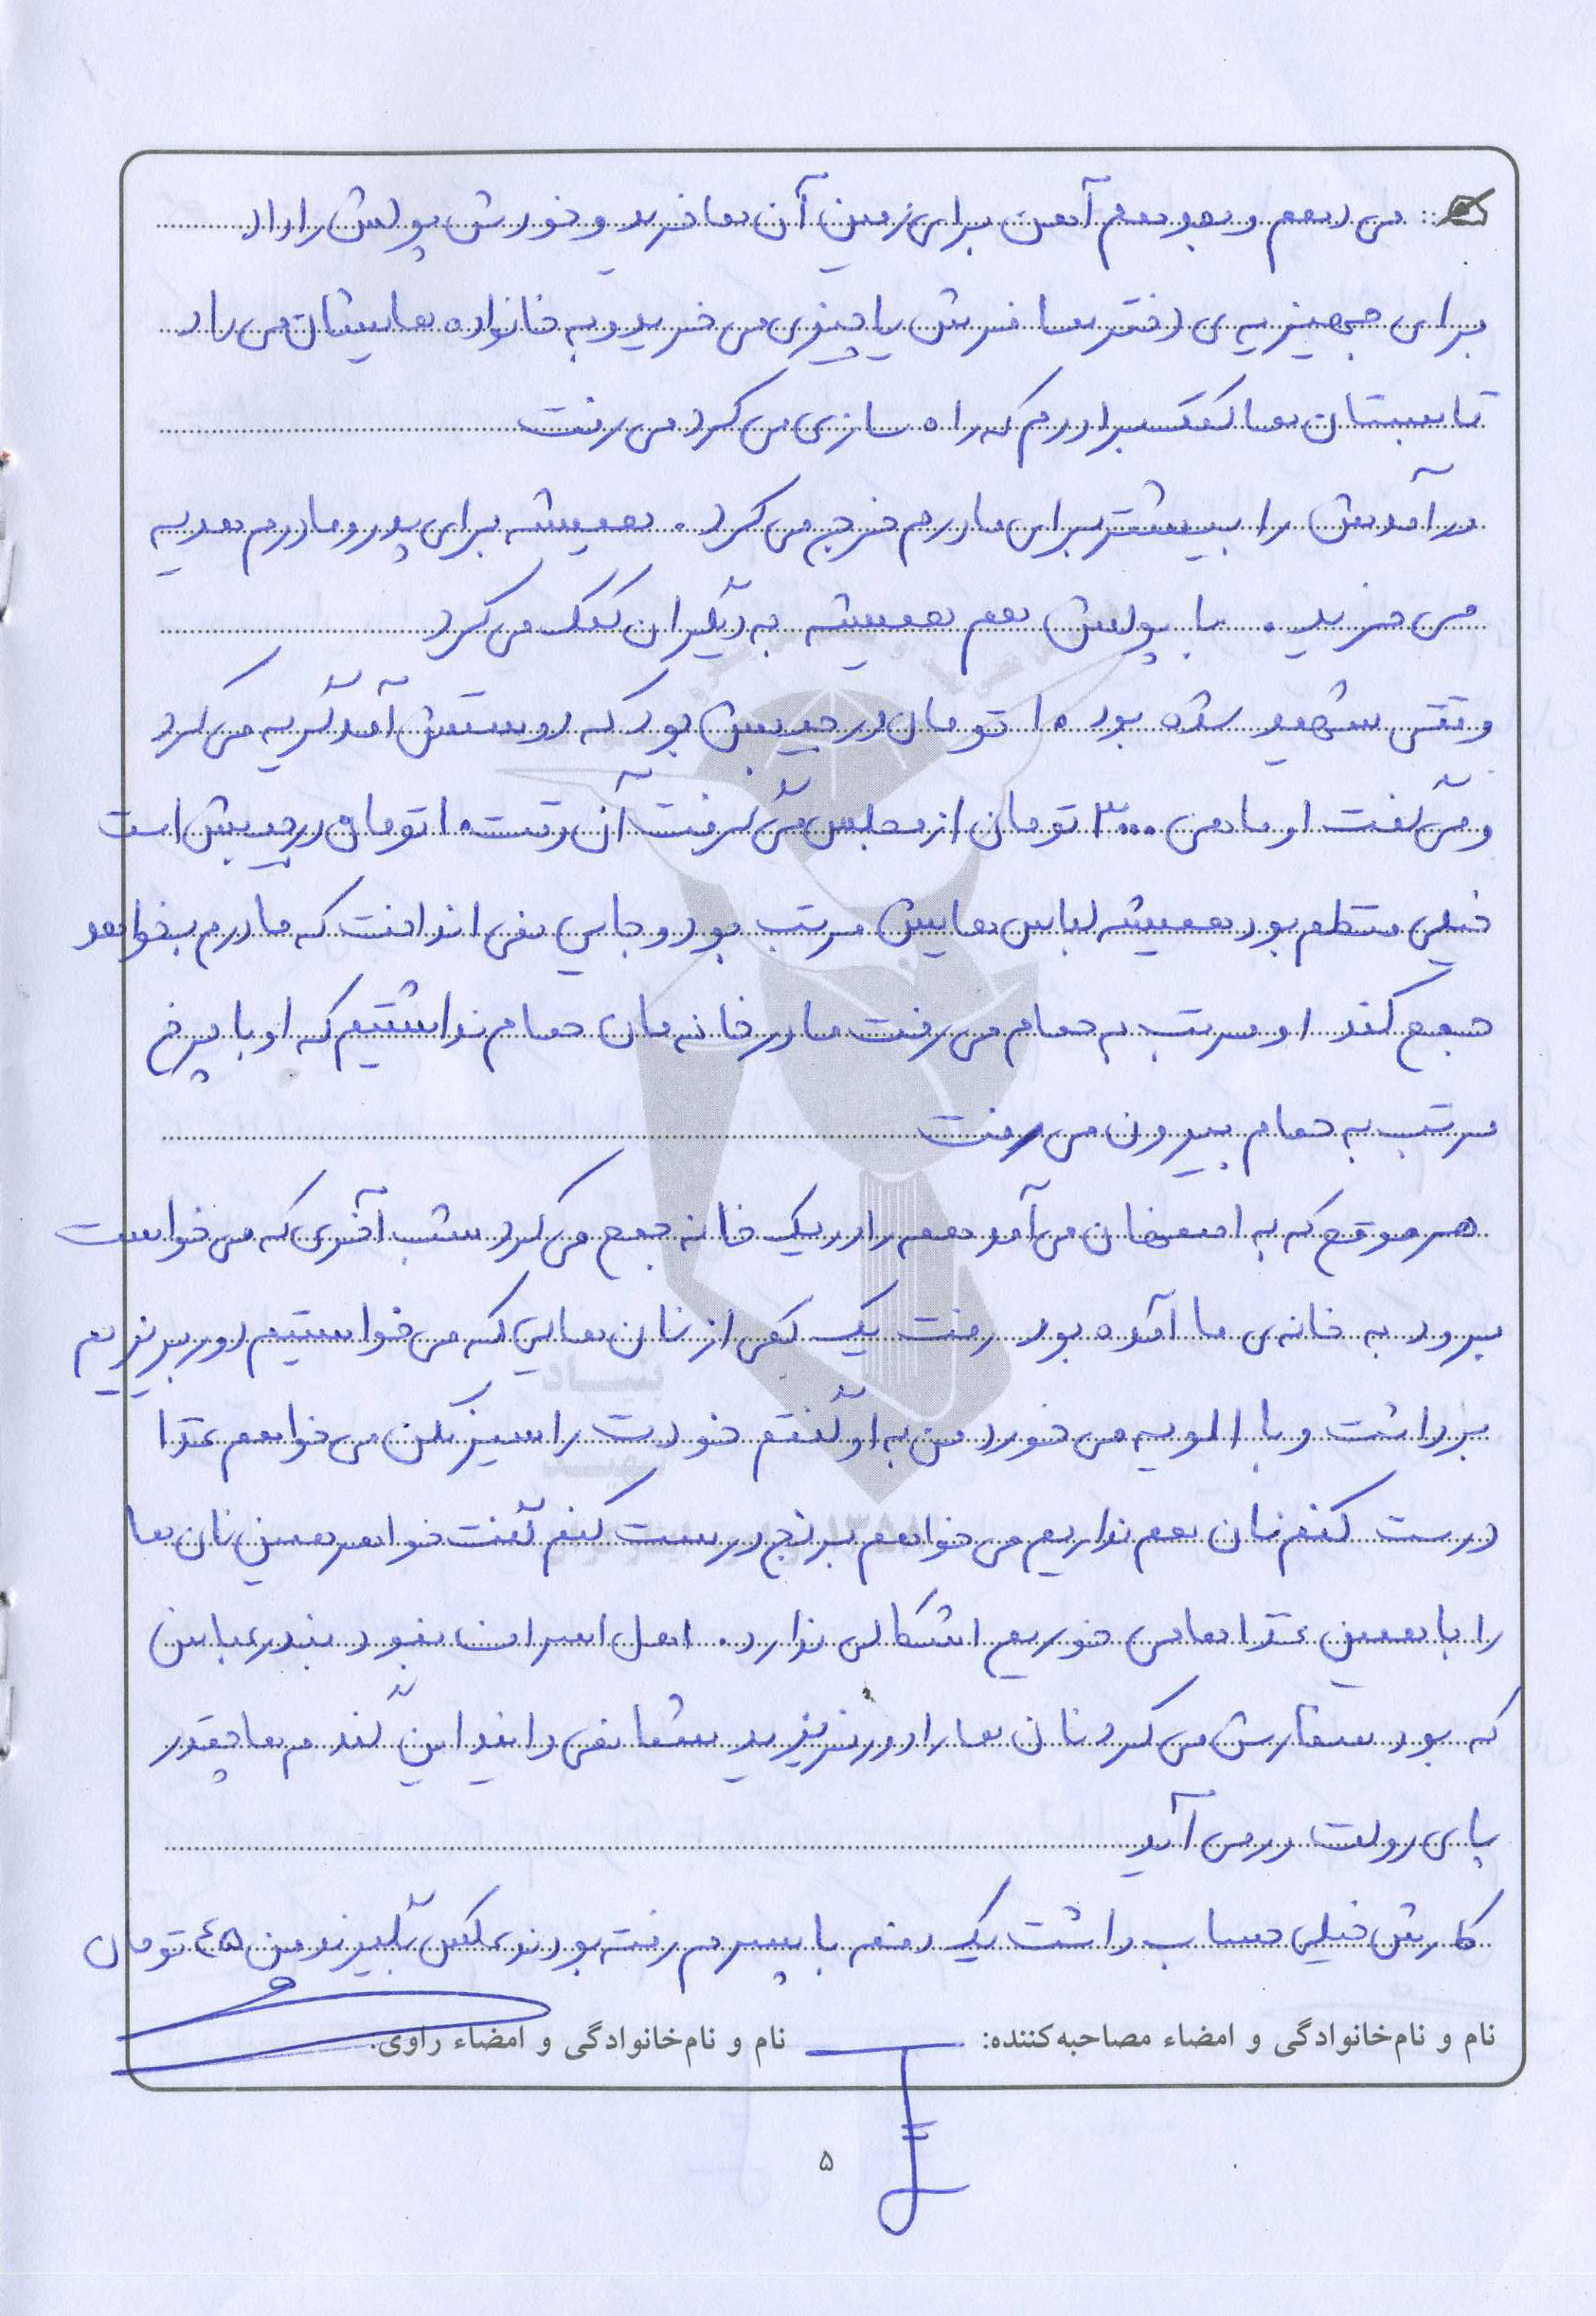 می دهم و بعد هم آهن برای زمین آن ها خرید و خودش پولش را داد
برای جهیزیه ی دختر ها فرش یا چیزی می خرید و به خانواده هایشان می داد
تابستان ها کمک برادرم که راه سازی می کرد می رفت
درآمدش را بیشتر برای مادرم خرج می کرد . همیشه برای پدر و مادرم هدیه
می خرید . با پولش هم همیشه به دیگران کمک می کرد
وقتی شهید شده بود ۱۰ تومان در جیبش بود که دوستش آمد گریه می کرد
و می گفت او ماهی ۳۰۰۰ تومان از مجلس می گرفت آن وقت ۱۰ تومان در جیبش است
خیلی منظم بود همیشه لباس هایش مرتب بود و جایی نمی انداخت که مادرم بخواهد
جمع کند او مرتب به حمام می رفت ما در خانه مان حمام نداشتیم که او با چرخ
مرتب به حمام بیرون می رفت
هر موقع که به اصفهان می آمد همه را در یک خانه جمع می کرد شب آخری که می خواست
برود به خانه ی ما آمده بود رفت یک کمی از نان هایی که می خواستیم دور بریزیم
برداشت و با الویه می خورد من به او گفتم خودت را سیر نکن می خواهم غذا
درست کنم نان هم نداریم می خواهم برنج درست کنم گفت خواهر همین نان ها
را با همین غذا ها می خوریم اشکالی ندارد . اهل اسراف نبود بندرعباس
که بود سفارش می کرد نان ها را دور نریزید شما نمی دانید این گندم ها چقدر
پای دولت در می آید
کارش خیلی حساب داشت یک دفعه با پسرم رفته بودند عکس بگیرند من ۴۵ تومان
نام و نام خانوادگی و امضاء مصاحبه کننده:
نام و نام خانوادگی و امضاء راوی:
۵